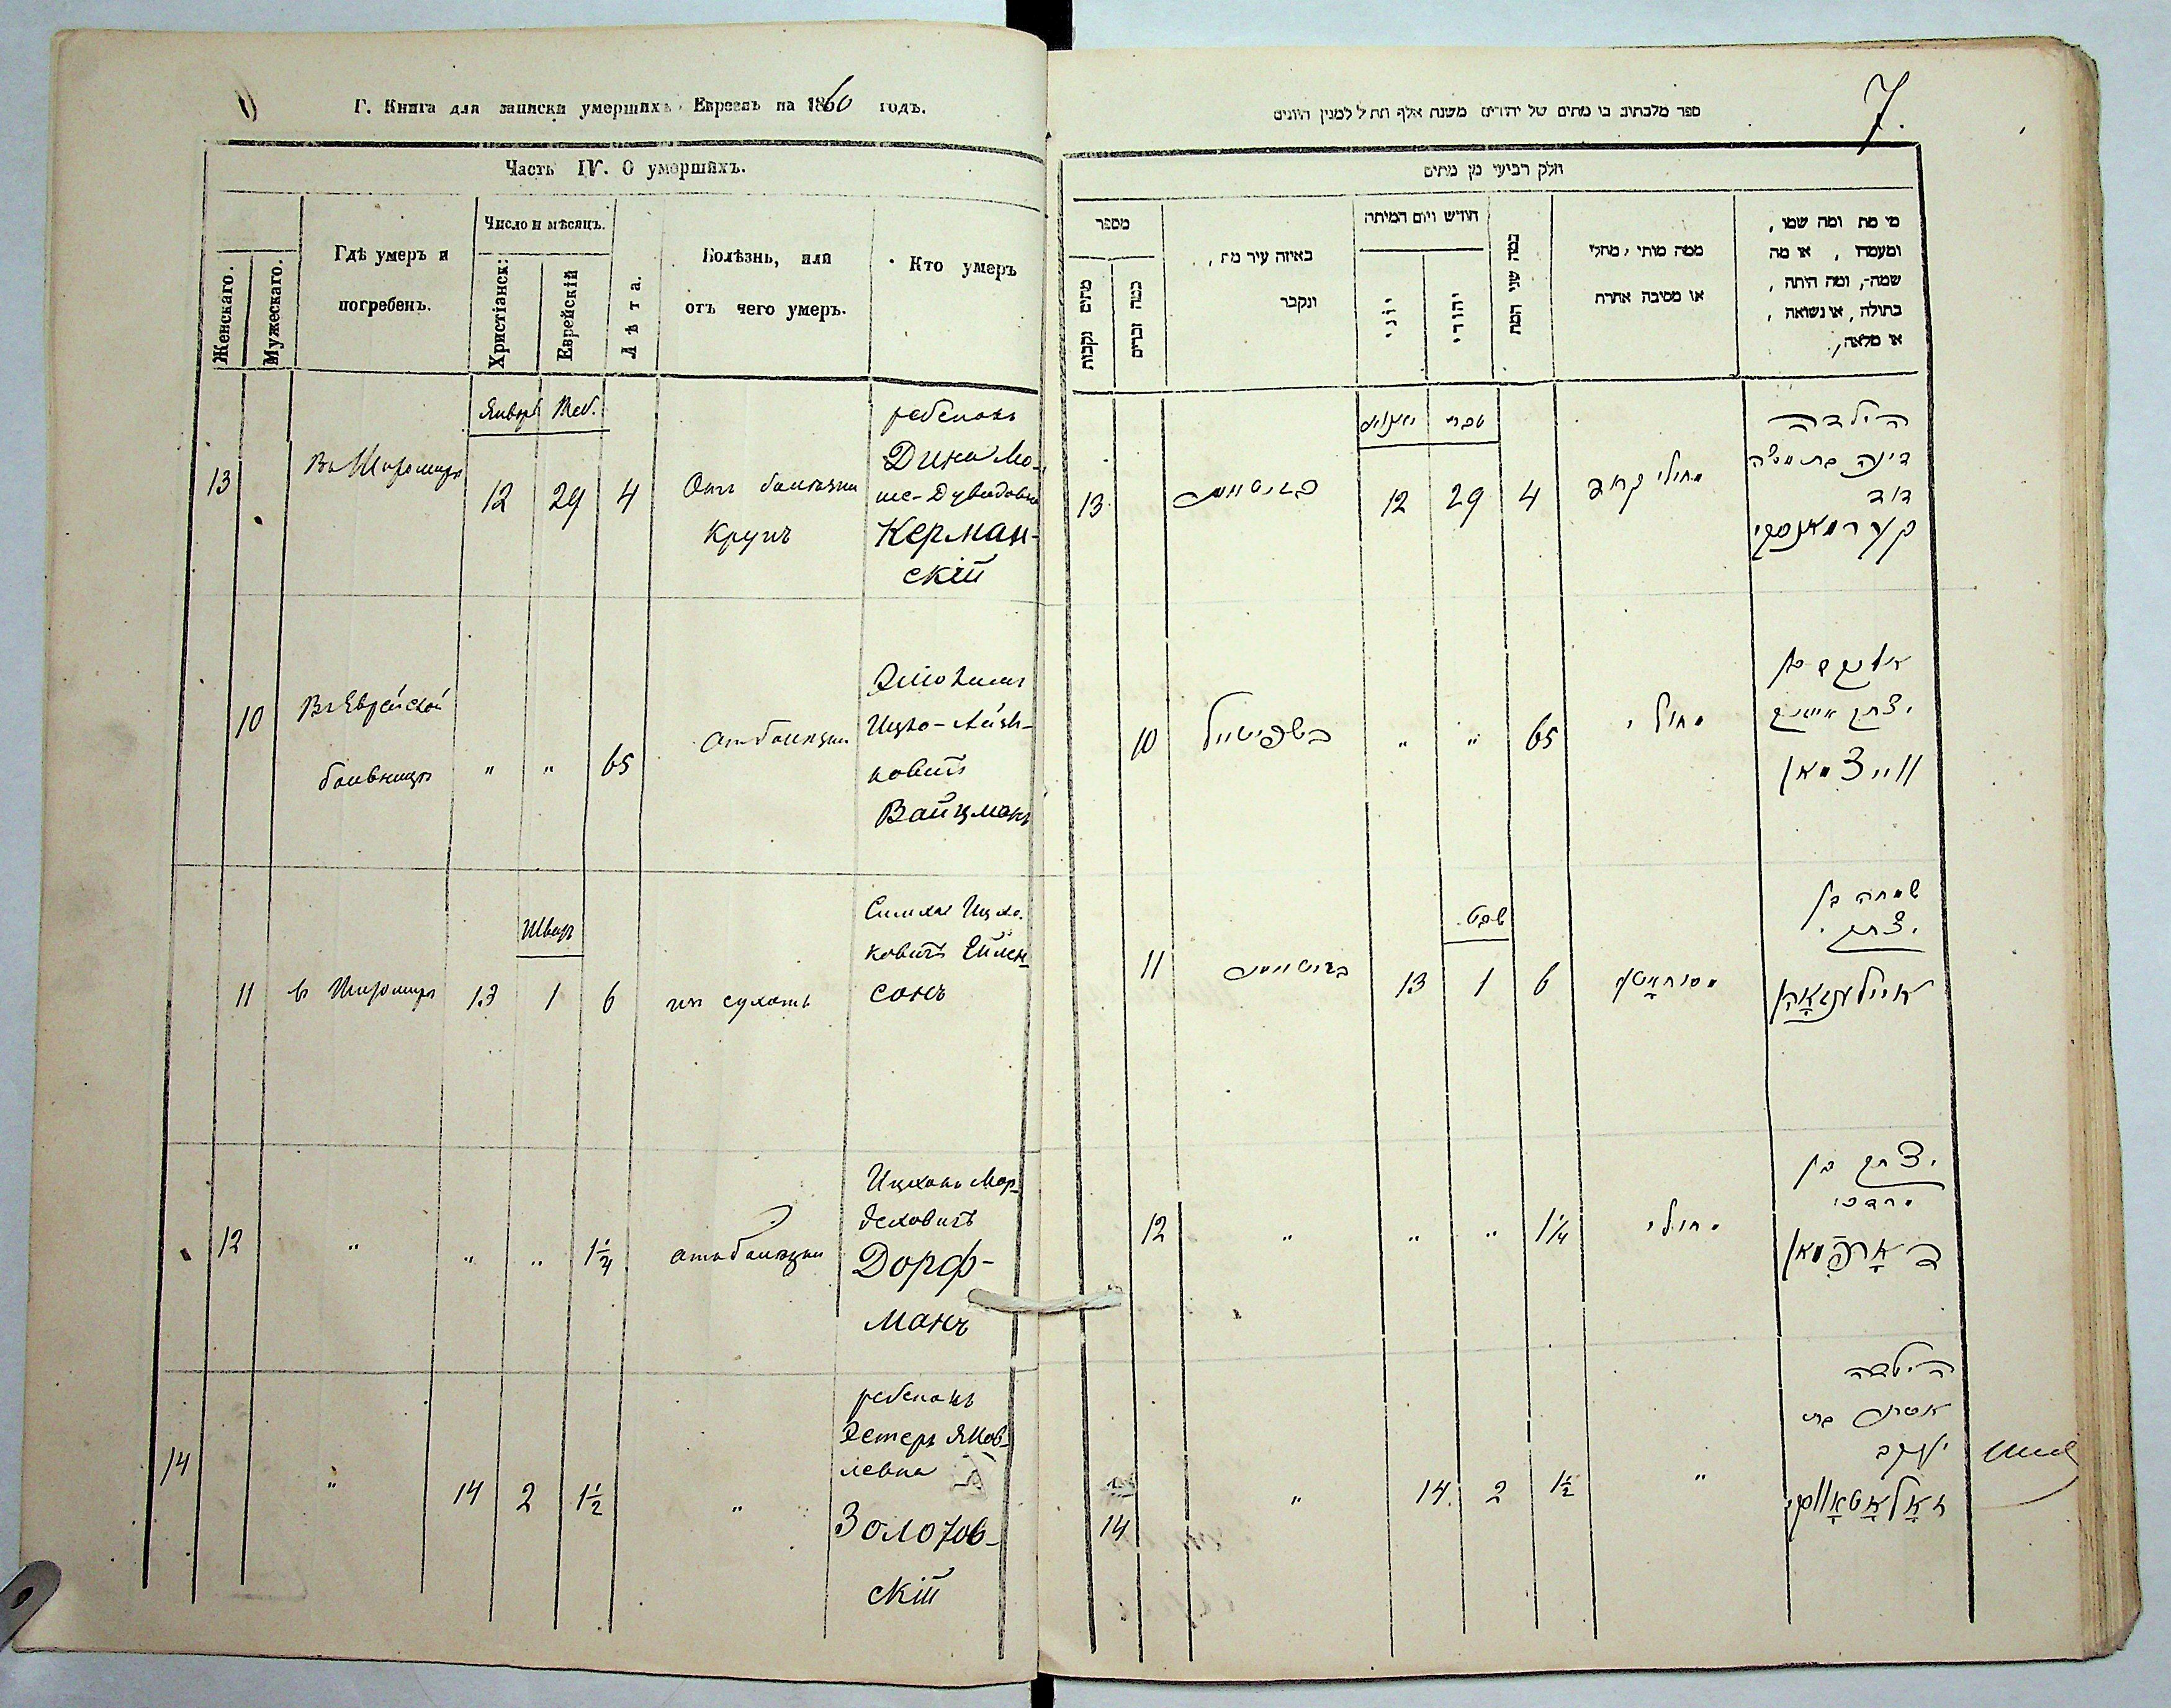 Г. Книга для записки умершихъ Евреевъ на 1860 годъ.
Часть IV. О умершихъ.
Женскаго.
Мужескаго.
Гдѣ умеръ и
погребенъ.
Число и мѣсяцъ.
Христіанск:
Еврейскій
Лѣта.
Болѣзнь, или
отъ чего умеръ.
Кто умеръ
Январь Тев.
13
Въ Житомирѣ
12 29 4
Отъ болѣзни
Крупъ
ребенокъ
Дина Мо-
ше-Дувидовна
Керман-
скій
10
Въ Еврейской
больницѣ
" " 65
отъ болѣзни
Ицко-
ковичъ
Вайцманъ
Шват
11
в Житомирѣ
13 1 6
Симха Ицко-
ковичъ Ейлен-
сонъ
12
" " " 1¼
отъ болѣзни
Ицхокъ Мор-
дковичъ
Дорф-
манъ
14
" 14 2 1½ "
ребенокъ
Эстеръ Яков-
левна
Золотов-
скій
7.
ספר מלכתוב בו מתים של יהודים משנת אלף תת"ל למנין היונים
חלק רביעי מן מתים
מספר
מתים נקבות
כמה זכרים
באיזה עיר מת,
ונקבר
חודש ויום המיתה
יוני
יהודי
כמה שני המת
ממה מותי, מחלי
או מסיבה אחרת
מי מת ומה שמו,
ומעמדו, או מה
שמה, ומה היתה,
בתולה, או נשואה,
או אלמנה,
יאנואר טבת
13
12 29 4
הילדה
דינה בת משה
דוד
קערמאנסקי
10
בשפיטאל
" " 65
מחולי
יצחק אייזיק
ווייצמאן
שבט
11
13 1 6
שמחה בן
יצחק
איילענזאָהן
12
" " " 1¼
מחולי
יצחק בן
מרדכי
דאָרפמאן
14
" 14 2 1½ "
הילדה
אסתר בת
יעקב
זאָלאָטאָווסקי